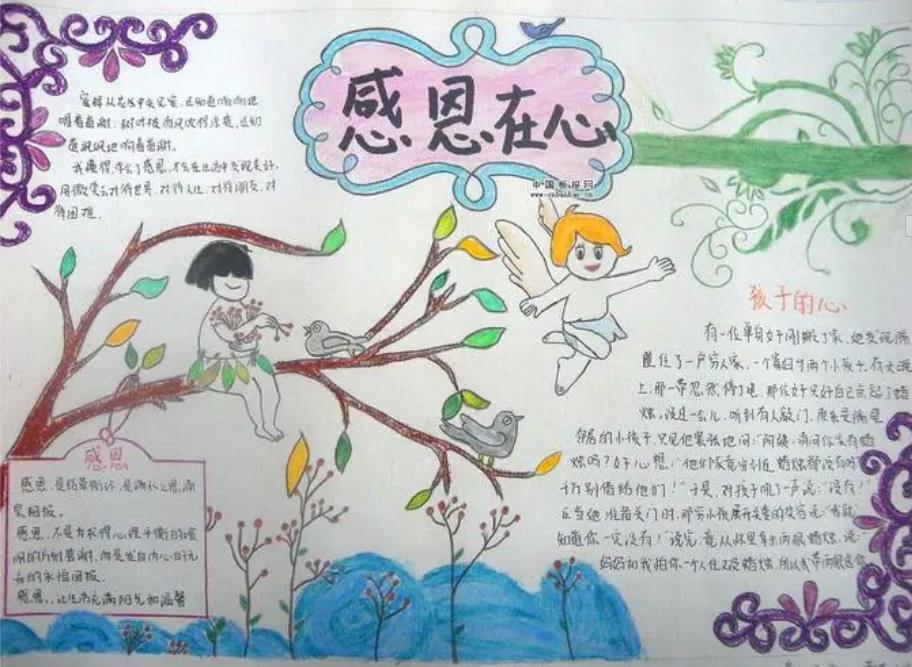 感恩在心
中国板报网
www.cnbanbao.cn
落叶在空中盘旋
唱着感谢
我懂得,学会了感恩,才会在生活中发现美好,
用微笑去对待世界,对待人生,对待朋友,对
待困难.
感恩
感恩,是结草衔环,是滴水之恩涌
泉相报。
感恩,不是为求得心理平衡的喧
闹的片刻答谢,而是发自内心的无
言的永恒回报。
感恩,让生活充满阳光和温馨
孩子的心
有一位单身女子刚搬了家,她发现隔
壁住了一户穷人家,一个寡妇与两个小孩子.有天晚
上,那一带忽然停了电,那位女子只好自己点起了蜡
烛.没过一会儿,听到有人敲门.原来是隔壁
邻居的小孩子,只见他紧张地问:"阿姨,请问你家有蜡
烛吗?"女子心想:"他们家竟穷到连蜡烛都没有吗?
千万别借给他们!"于是,对孩子吼了一声说:"没有!"
正当她准备关门时,那穷小孩展开关爱的笑容说:"我就
知道你一定没有!"说完,竟从怀里拿出两根蜡烛,说:"
妈妈和我怕你一个人住又没蜡烛,所以我带两根送你